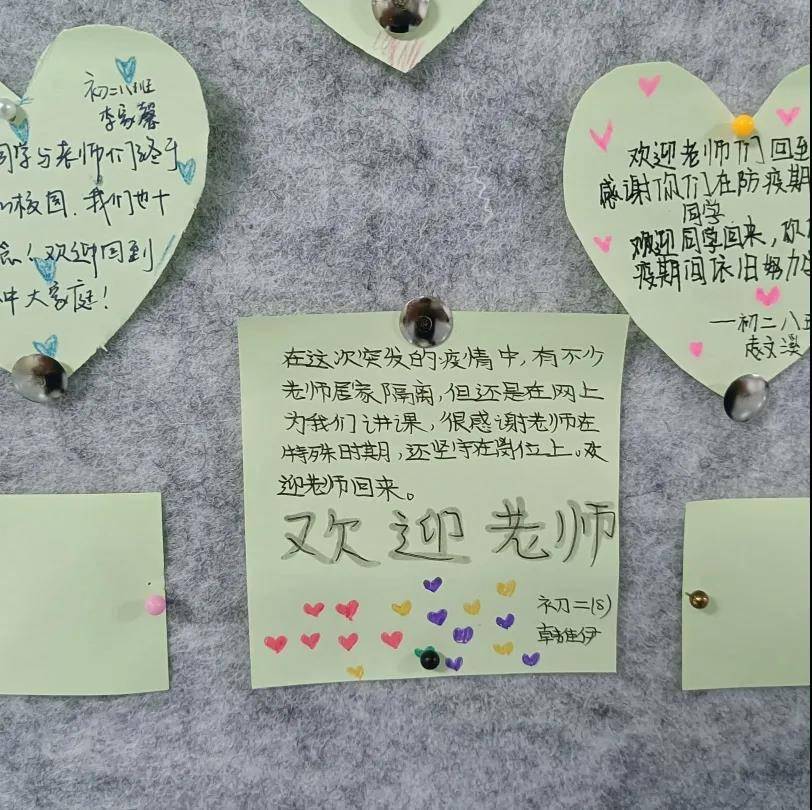 初二八班
李家馨
同学与老师们终于
校园.我们也十
念!欢迎回到
大家庭!
欢迎老师们回到
感谢你们在防疫期
同学
欢迎同学回来,
疫期间依旧努力
—初二八
在这次突发的疫情中,有不少
老师居家隔离,但还是在网上
为我们讲课,很感谢老师在
特殊时期,还坚守在岗位上。欢
迎老师回来。
欢迎老师
初二(8)
韩雅伊